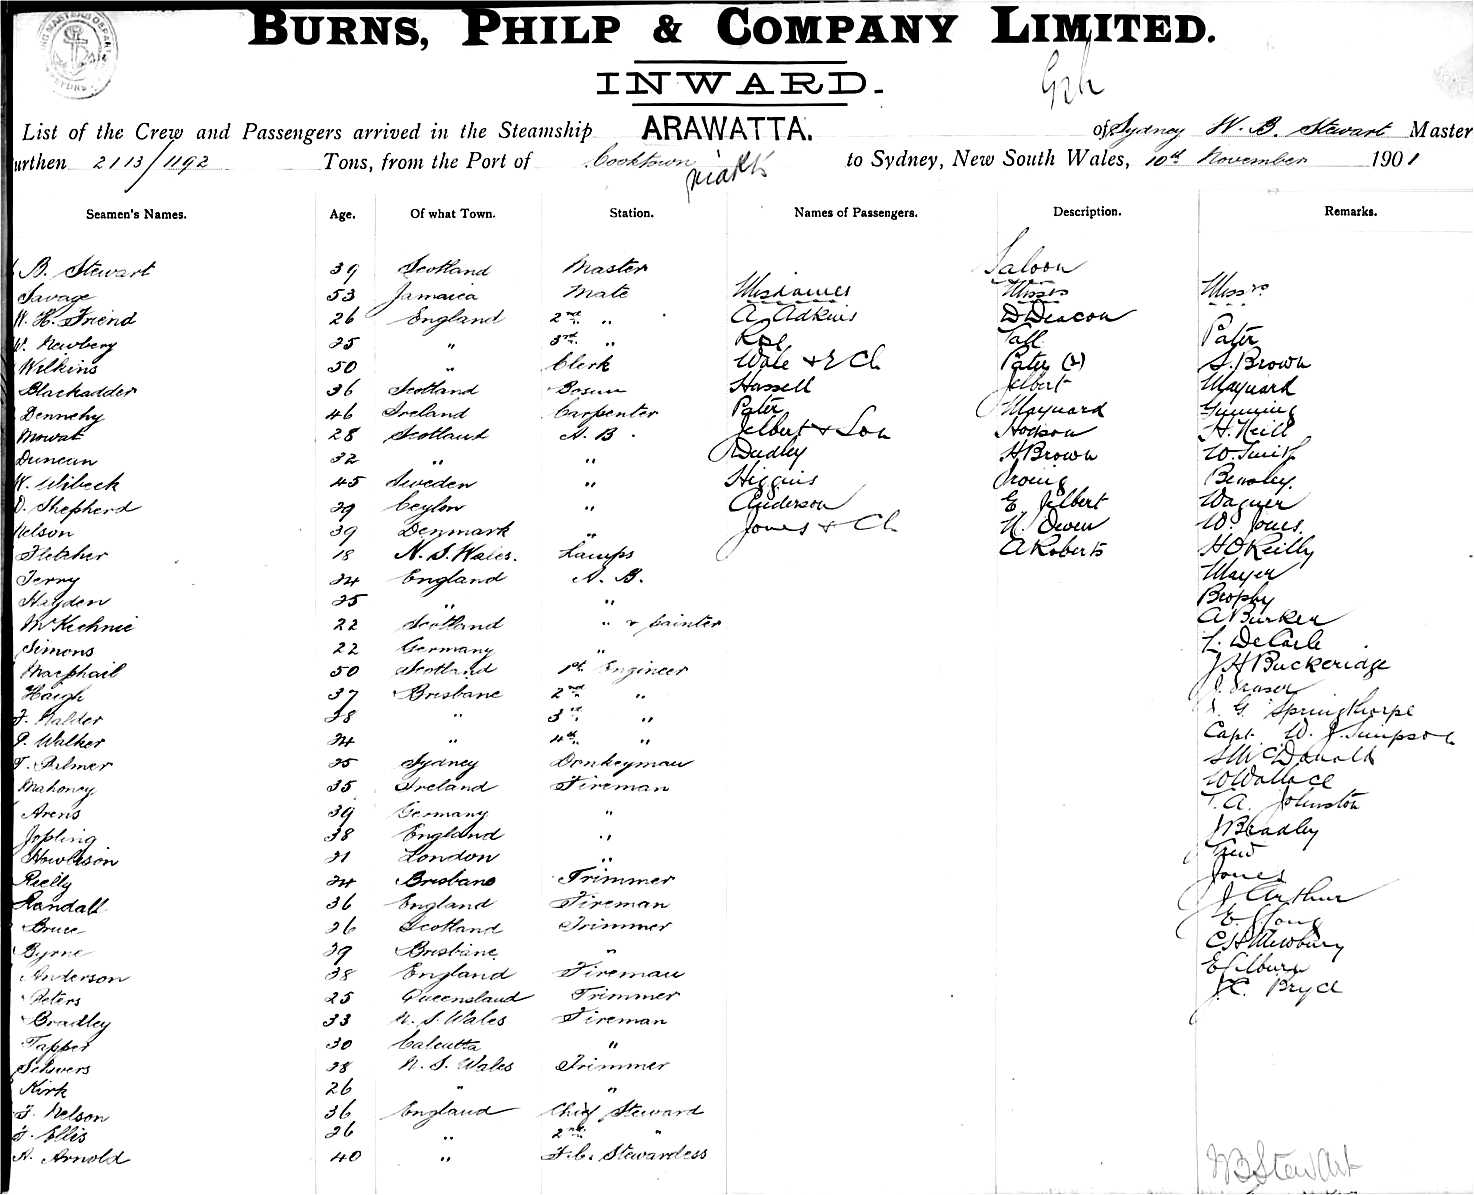 BURNS, PHILP & COMPANY LIMITED.
INWARD.
List of the Crew and Passengers arrived in the Steamship ARAWATTA. of Sydney W. B. Stewart Master
urthen 2113/1192 Tons, from the Port of Cooktown to Sydney, New South Wales, 10th November 1901
Seamen's Names. Age. Of what Town. Station. Names of Passengers. Description. Remarks.
Saloon
B. Stewart 39 Scotland Master
Savage 53 Jamaica Mate Mesdames Misses Messrs
W. H. Friend 26 England 2nd " A Adkins D Deacon
W. Newbery 25 " 3rd " Tall Pater
Wilkins 50 " Clerk Wale & 2 Ch Pater (2) S. Brown
Blackadder 36 Scotland Bosun Hassell Jelbert Maynard
Dennehy 46 Ireland Carpenter Pater Maynard
Mowat 28 Scotland A. B. Jelbert & Son Hodson H. Neill
Duncan 32 " " Dudley H Brown W. Smith
W. Wibeck 45 Sweden " Higgins Irving Beasley.
D. Shepherd 29 Ceylon " Anderson E Jelbert Wagner
Nelson 39 Denmark " Jones & Ch N. Owen W. Jones.
Fletcher 18 N. S. Wales. Lamps A Roberts H O Reilly
Terry 24 England A. B. Mayer
Hayden 25 " " Brophy
McKechnie 22 Scotland " & Painter A Burker
Simons 22 Germany " L. De Carle
Macphail 50 Scotland 1st Engineer J H Buckeridge
Haigh 37 Brisbane 2nd " J. Fraser
F. Nalder 28 " 3rd " G Springthorpe
P. Walker 24 " 4th " Capt. W. J. Simpson
T. Palmer 25 Sydney Donkeyman S McDonald
Mahoney 35 Ireland Fireman W Wallace
Arens 39 Germany " T. A. Johnston
Jopling 38 England " J Bradley
Howieson 21 London "
Reilly 24 Brisbane Trimmer Jones
Randall 36 England Fireman J Arthur
Bruce 26 Scotland Trimmer E. Long
Byrne 29 Brisbane " C H Newbury
Anderson 38 England Fireman E Tilburn
Peters 25 Queensland Trimmer J. C. Bryd
Bradley 33 N. S. Wales Fireman
Tapper 30 Calcutta "
Schwers 28 N. S. Wales Trimmer
Kirk 26 " "
F. Nelson 36 England Chief Steward
F. Ellis 26 " 2nd "
A. Arnold 40 " F.C. Stewardess
W B Stewart